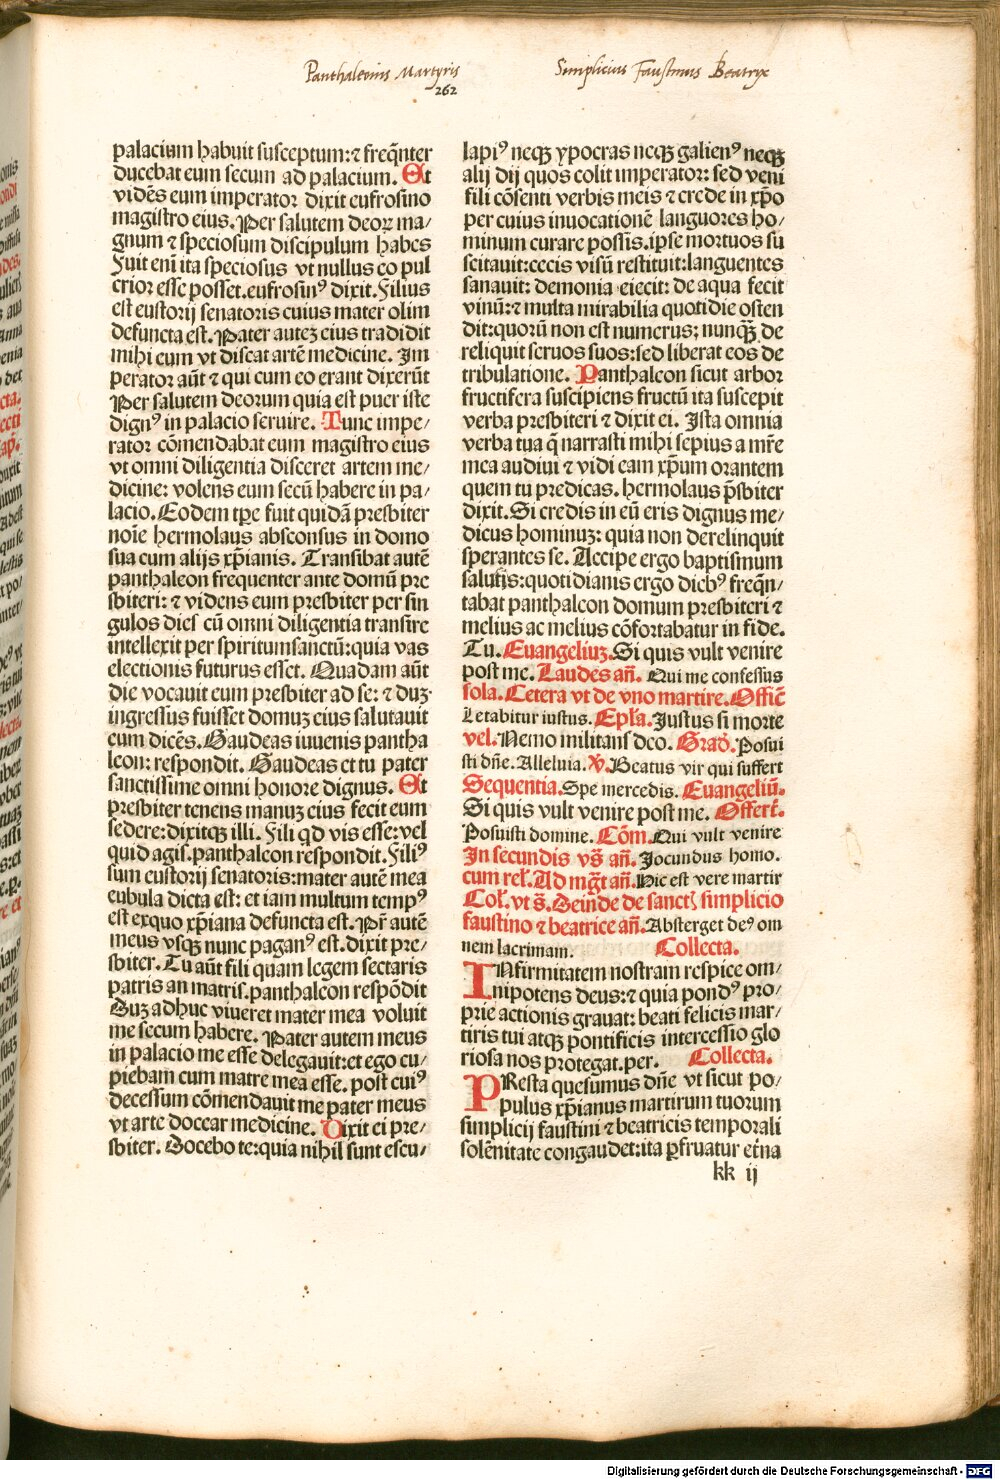 Panthaleonis Martyris
262
Simplicius Faustinus Beatryx
palacium habuit susceptum:⁊ freq̃nter
ducebat eum secum ad palacium. Et
vidẽs eum imperator dixit eufrosino
magistro eius. Per salutem deoꝝ ma/
gnum ⁊ speciosum discipulum habes
Fuit enī ita speciosus vt nullus eo pul
crior esse posset. eufrosinꝰ dixit. Filius
est eustorij senatoris cuius mater olim
defuncta est. Pater autez eius tradidit
mihi eum vt discat artẽ medicine. Im
perator aūt ⁊ qui cum eo erant dixerūt
Per salutem deorum quia est puer iste
dignꝰ in palacio seruire. Tunc impe/
rator cōmendabat eum magistro eius
vt omni diligentia disceret artem me/
dicine: volens eum secū habere in pa/
lacio. Eodem tꝑe fuit quidā presbiter
noīe hermolaus absconsus in domo
sua cum alijs xp̄ianis. Transibat autē
panthaleon frequenter ante domū pre
sbiteri: ⁊ videns eum presbiter per sin
gulos dies cū omni diligentia transire
intellexit per spiritumsanctū: quia vas
electionis futurus esset. Quadam aūt
die vocauit eum presbiter ad se: ⁊ duz
ingressus fuisset domuz eius salutauit
eum dicēs. Gaudeas iuuenis pantha
leon: respondit. Gaudeas et tu pater
sanctissime omni honore dignus. Et
presbiter tenens manuz eius fecit eum
sedere: dixitqꝫ illi. Fili qd vis esse: vel
quid agis. panthaleon respondit. Filiꝰ
sum eustorij senatoris: mater autē mea
eubula dicta est: et iam multum tempꝰ
est exquo xp̄iana defuncta est. Pr̄ autē
meus vsqꝫ nunc paganꝰ est. dixit pre/
sbiter. Tu aūt fili quam legem sectaris
patris an matris. panthaleon respōdit
Duz adhuc viueret mater mea voluit
me secum habere. Pater autem meus
in palacio me esse delegauit: et ego cu/
piebam cum matre mea esse. post cuiꝰ
decessum cōmendauit me pater meus
vt arte docear medicine. Dixit ei pre/
sbiter. Docebo te: quia nihil sunt escu/
lapiꝰ neqꝫ ypocras neqꝫ galienꝰ neqꝫ
alij dij quos colit imperator: sed veni
fili cōsenti verbis meis ⁊ crede in xp̄o
per cuius inuocationē languores ho/
minum curare possis. ipse mortuos su
scitauit: cecis visū restituit: languentes
sanauit: demonia eiecit: de aqua fecit
vinū: ⁊ multa mirabilia quotidie osten
dit: quorū non est numerus: nunqꝫ̄ de
reliquit seruos suos: sed liberat eos de
tribulatione. Panthaleon sicut arbor
fructifera suscipiens fructū ita suscepit
verba presbiteri ⁊ dixit ei. Ista omnia
verba tua q̄ narrasti mihi sepius a mr̄e
mea audiui ⁊ vidi eam xp̄um orantem
quem tu predicas. hermolaus p̄sbiter
dixit. Si credis in eū eris dignus me/
dicus hominuz: quia non derelinquit
sperantes se. Accipe ergo baptismum
salutis: quotidianis ergo diebꝰ freq̄n/
tabat panthaleon domum presbiteri ⁊
melius ac melius cōfortabatur in fide.
Tu. Euangeliuz. Si quis vult venire
post me. Laudes añ. Qui me confessus
sola. Cetera vt de vno martire. Officē
Letabitur iustus. Epl̄a. Justus si morte
vel. Nemo militans deo. Grad. Posui
sti dñe. Alleluia. V̄. Beatus vir qui suffert
Sequentia. Spe mercedis. Euangeliū.
Si quis vult venire post me. Offert̄.
Posuisti domine. Cōm. Qui vult venire
In secundis vs̄ añ. Jocundus homo.
cum rel̄. Ad mg̃t añ. Hic est vere martir
Col̄. vt s̄. Deinde de sanctꝭ simplicio
faustino ⁊ beatrice añ. Absterget deꝰ om
nem lacrimam. Collecta.
INfirmitatem nostram respice om/
nipotens deus: ⁊ quia pondꝰ pro/
prie actionis grauat: beati felicis mar/
tiris tui atqꝫ pontificis intercessio glo
riosa nos protegat. per. Collecta.
PResta quesumus dñe vt sicut po/
pulus xp̄ianus martirum tuorum
simplicij faustini ⁊ beatricis temporali
solēnitate congaudet: ita ꝑfruatur et̄na
kk ij
Digitalisierung gefördert durch die Deutsche Forschungsgemeinschaft - DFG